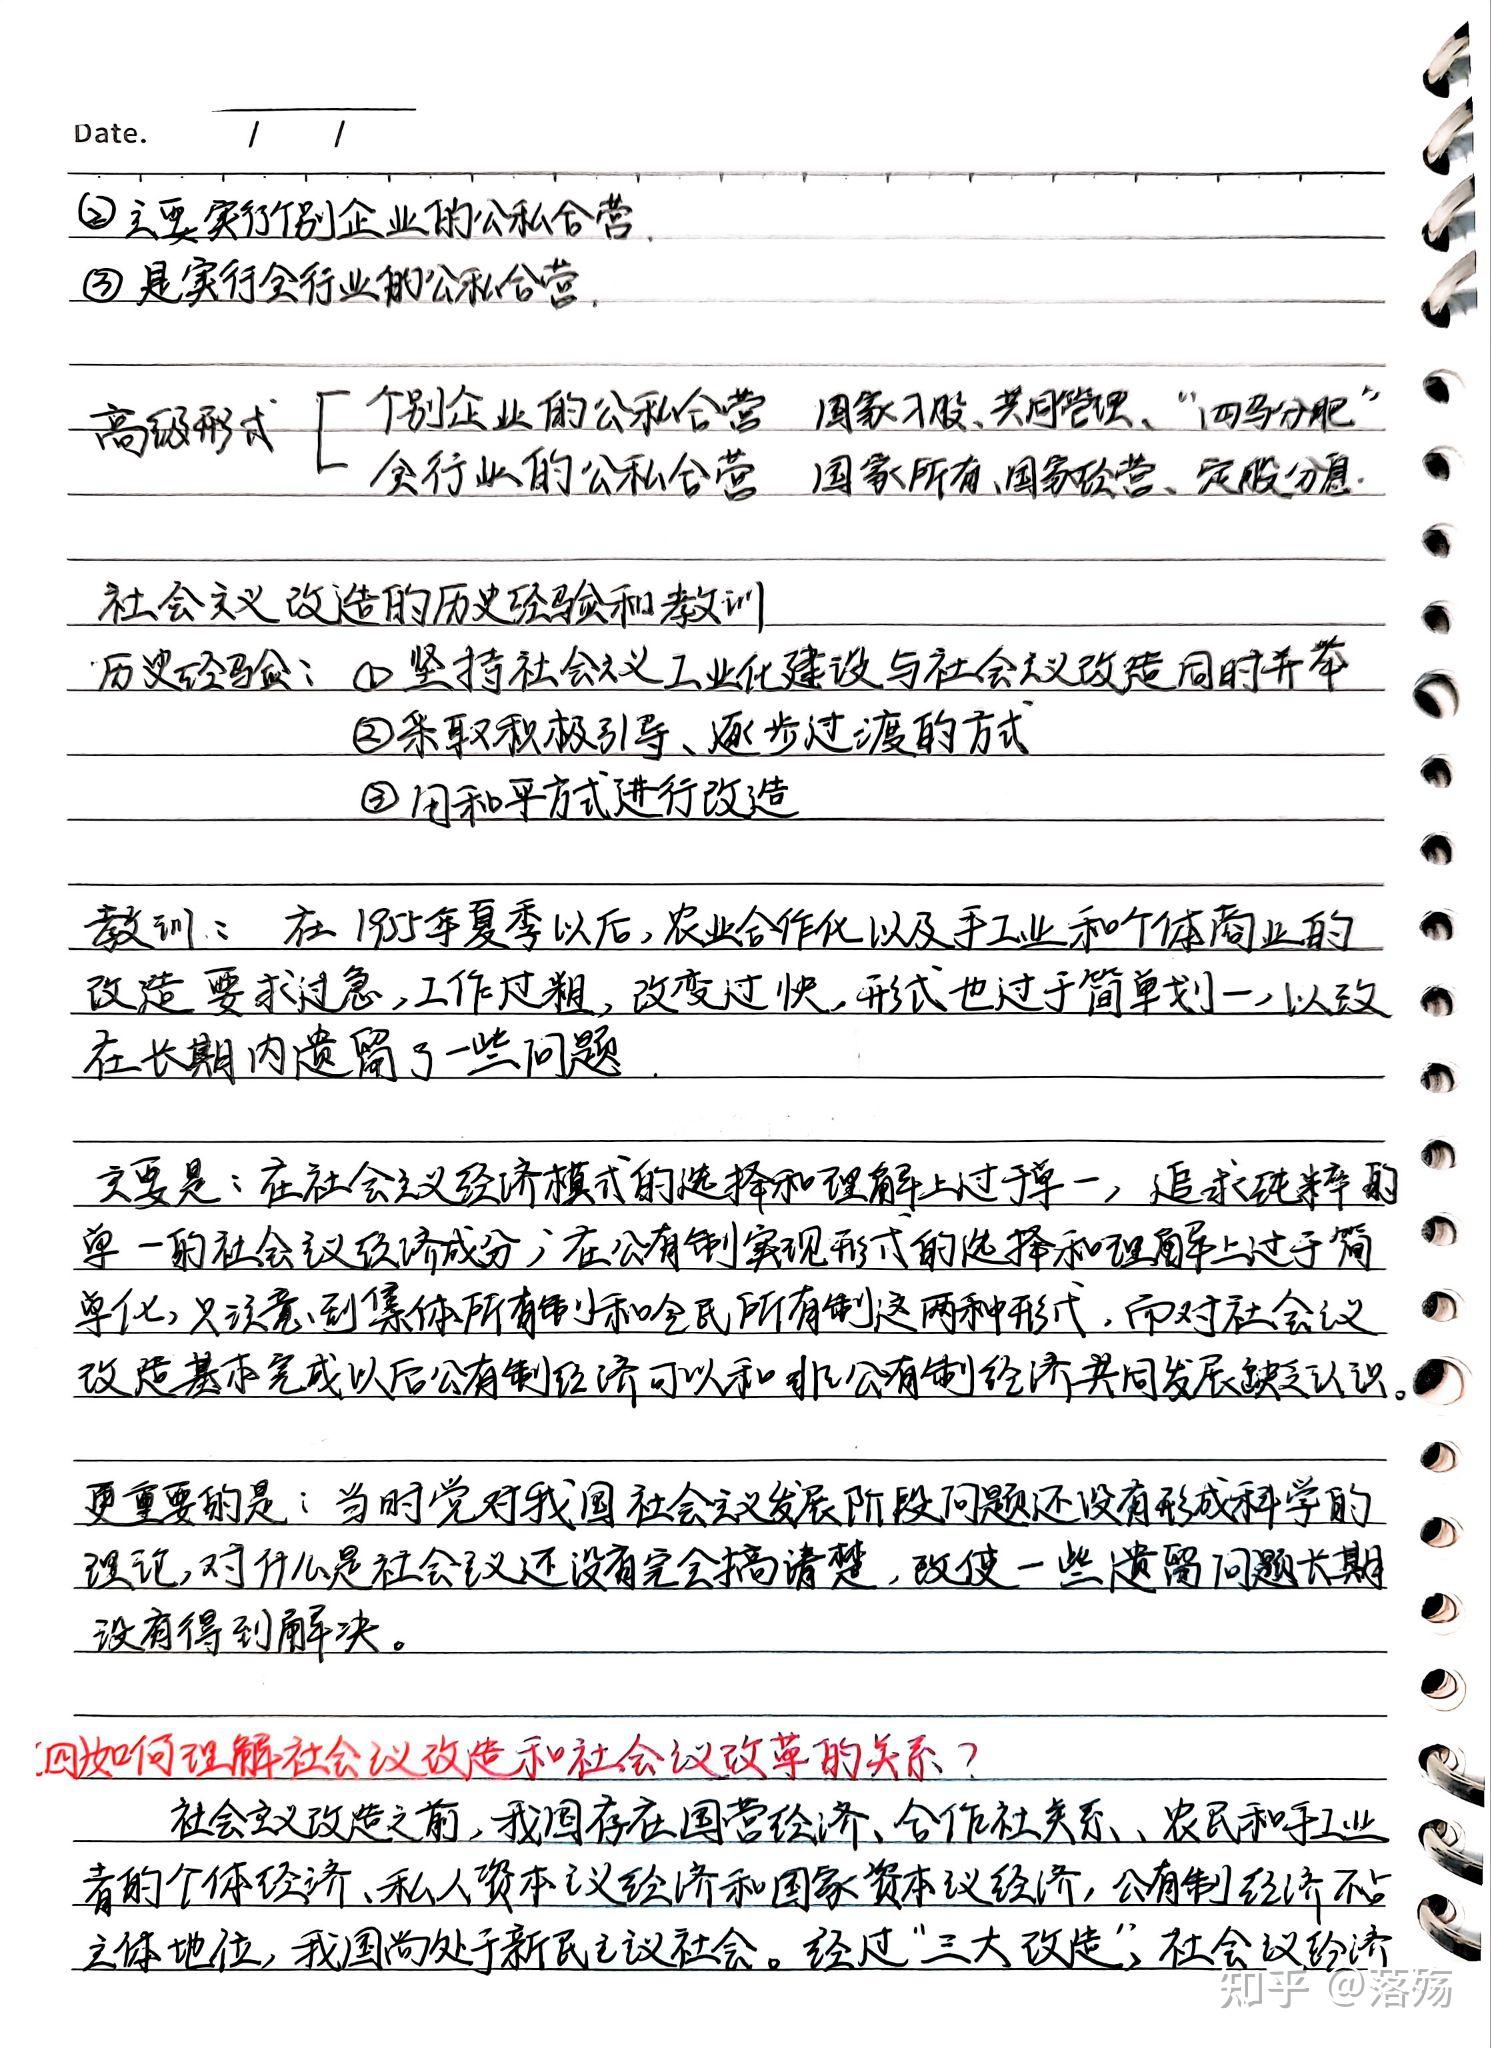 Date. / /
②主要实行个别企业的公私合营.
③是实行全行业的公私合营.
高级形式 [ 个别企业的公私合营 国家入股、共同管理、“四马分肥”
全行业的公私合营 国家所有、国家经营、定股分息.
社会主义改造的历史经验和教训
历史经验: ①坚持社会主义工业化建设与社会主义改造同时并举
②采取积极引导、逐步过渡的方式
③用和平方式进行改造
教训: 在1955年夏季以后,农业合作化以及手工业和个体商业的
改造要求过急,工作过粗,改变过快,形式也过于简单划一,以致
在长期内遗留了一些问题.
主要是:在社会主义经济模式的选择和理解上过于单一,追求纯粹的
单一的社会主义经济成分;在公有制实现形式的选择和理解上过于简
单化,只注意到集体所有制和全民所有制这两种形式,而对社会主义
改造基本完成以后公有制经济可以和非公有制经济共同发展缺乏认识。
更重要的是:当时党对我国社会主义发展阶段问题还没有形成科学的
理论,对什么是社会主义还没有完全搞清楚,致使一些遗留问题长期
没有得到解决。
四如何理解社会主义改造和社会主义改革的关系?
社会主义改造之前,我国存在国营经济、合作社关系、、农民和手工业
者的个体经济、私人资本主义经济和国家资本主义经济,公有制经济不占
主体地位,我国尚处于新民主主义社会。经过“三大改造”,社会主义经济
知乎 @落殇